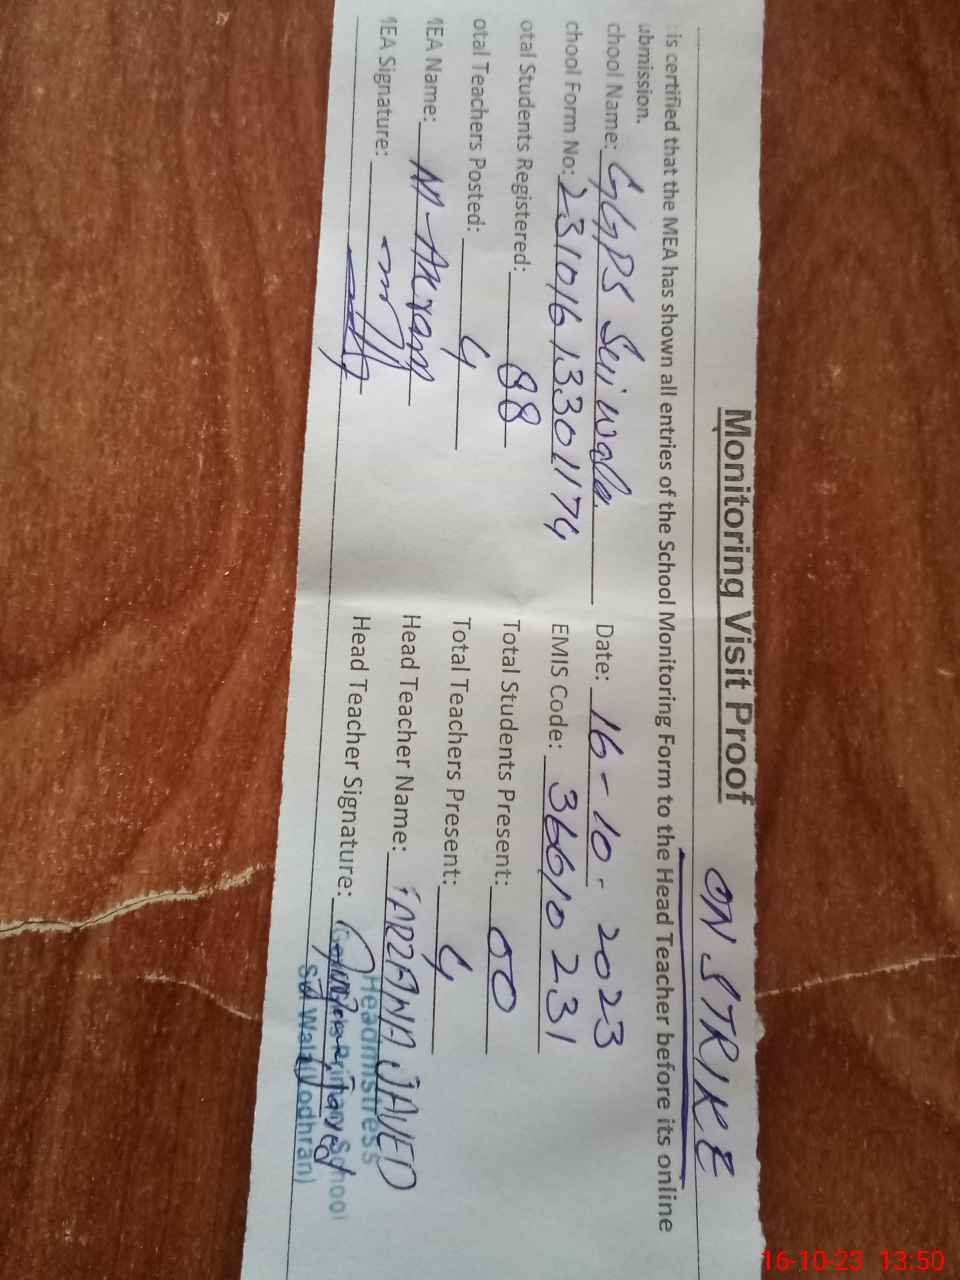 Monitoring Visit Proof
ON STRIKE
is certified that the MEA has shown all entries of the School Monitoring Form to the Head Teacher before its online
ubmission.
chool Name: GGPS Sui wala. Date: 16-10-2023
chool Form No: 23101613301174 EMIS Code: 36610231
otal Students Registered: 88 Total Students Present: 00
otal Teachers Posted: 4 Total Teachers Present: 4
MEA Name: M-Akram Head Teacher Name: FARZANA JAVED
MEA Signature: Head Teacher Signature:
Headmistress
Primary School
Sui Wala Lodhran)
16-10-23 13:50